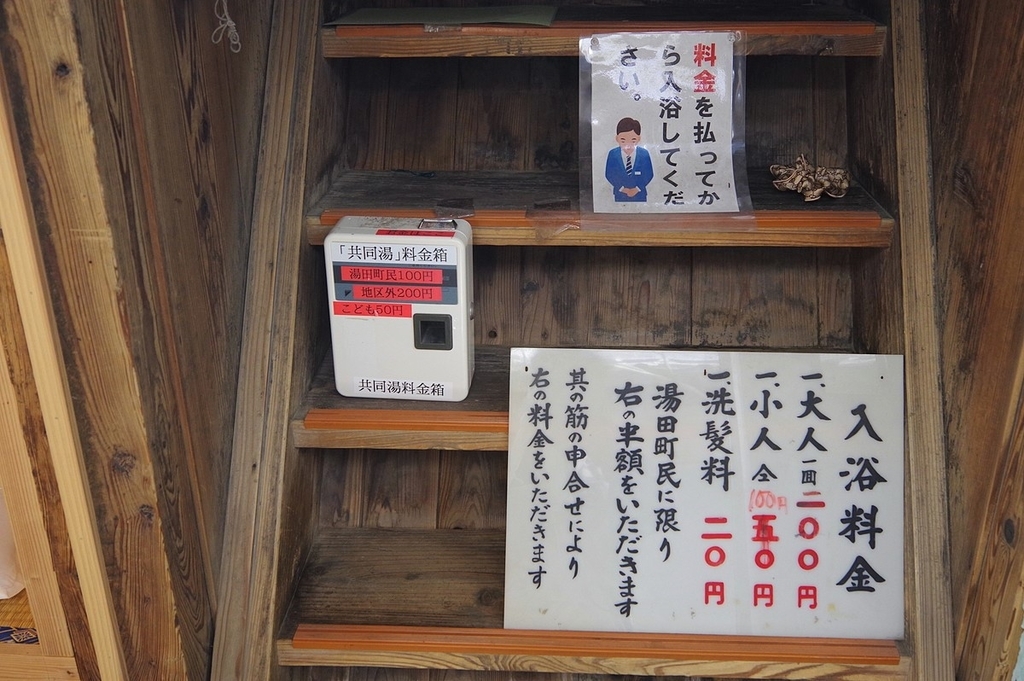 料金を払ってか
ら入浴してくだ
さい。
「共同湯」料金箱
湯田町民100円
地区外200円
こども50円
共同湯料金箱
入浴料金
一、大人一回二〇〇円
一、小人仝五〇円
100円
一、洗髪料二〇円
湯田町民に限り
右の半額をいただきます
其の筋の申合せにより
右の料金をいただきます